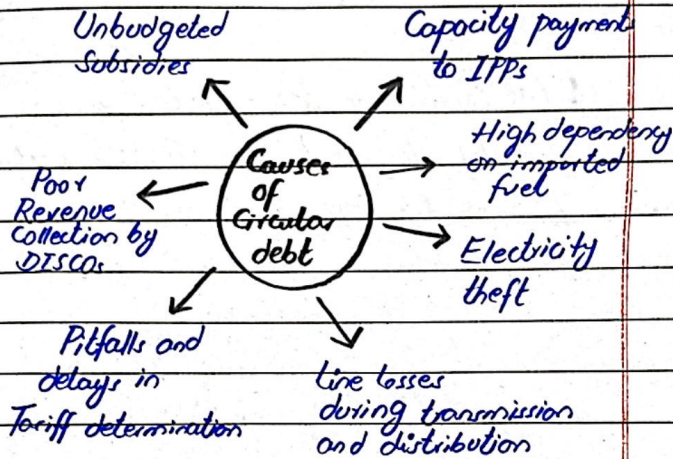 Unbudgeted
Subsidies
Capacity payments
to IPPs
Causes
of
Circular
debt
High dependency
on imported
fuel
Poor
Revenue
Collection by
DISCOs
Electricity
theft
Pitfalls and
delays in
Tariff determination
Line losses
during transmission
and distribution